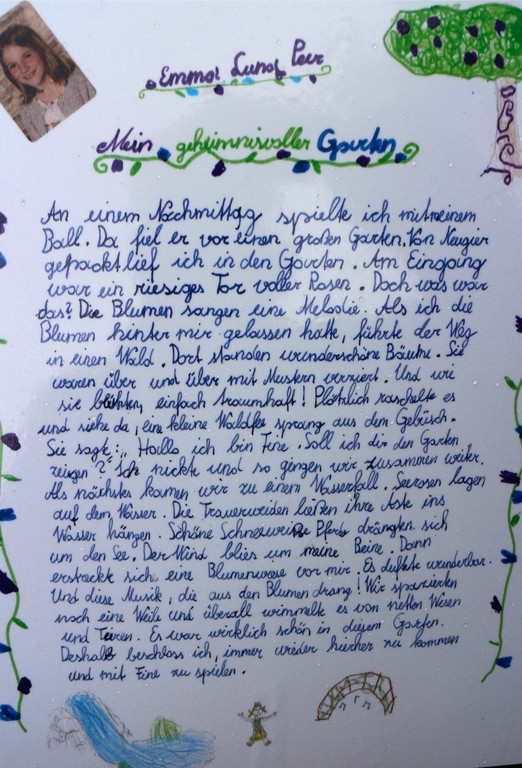 Emma Luna Peer
Mein geheimnisvoller Garten
An einem Nachmittag spielte ich mit meinem
Ball. Da fiel er vor einen großen Garten. Von Neugier
gepackt lief ich in den Garten. Am Eingang
war ein riesiges Tor voller Rosen. Doch was war
das? Die Blumen sangen eine Melodie. Als ich die
Blumen hinter mir gelassen hatte, führte der Weg
in einen Wald. Dort standen wunderschöne Bäume. Sie
waren über und über mit Mustern verziert. Und wie
sie blühten, einfach traumhaft! Plötzlich raschelte es
und siehe da, eine kleine Waldfee sprang aus dem Gebüsch.
Sie sagte: „Hallo ich bin Fine. Soll ich dir den Garten
zeigen? Ich nickte und so gingen wir zusammen weiter.
Als nächstes kamen wir zu einem Wasserfall. Seerosen lagen
auf dem Wasser. Die Trauerweiden ließen ihre Äste ins
Wasser hängen. Schöne Schneeweiße Pferde drängten sich
um den See. Der Wind blies um meine Beine. Dann
erstreckte sich eine Blumenwiese vor mir. Es duftete wunderbar.
Und diese Musik, die aus den Blumen drang! Wir spazierten
noch eine Weile und überall wimmelte es von netten Wesen
und Tieren. Es war wirklich schön in diesem Garten.
Deshalb beschloss ich, immer wieder hierher zu kommen
und mit Fine zu spielen.